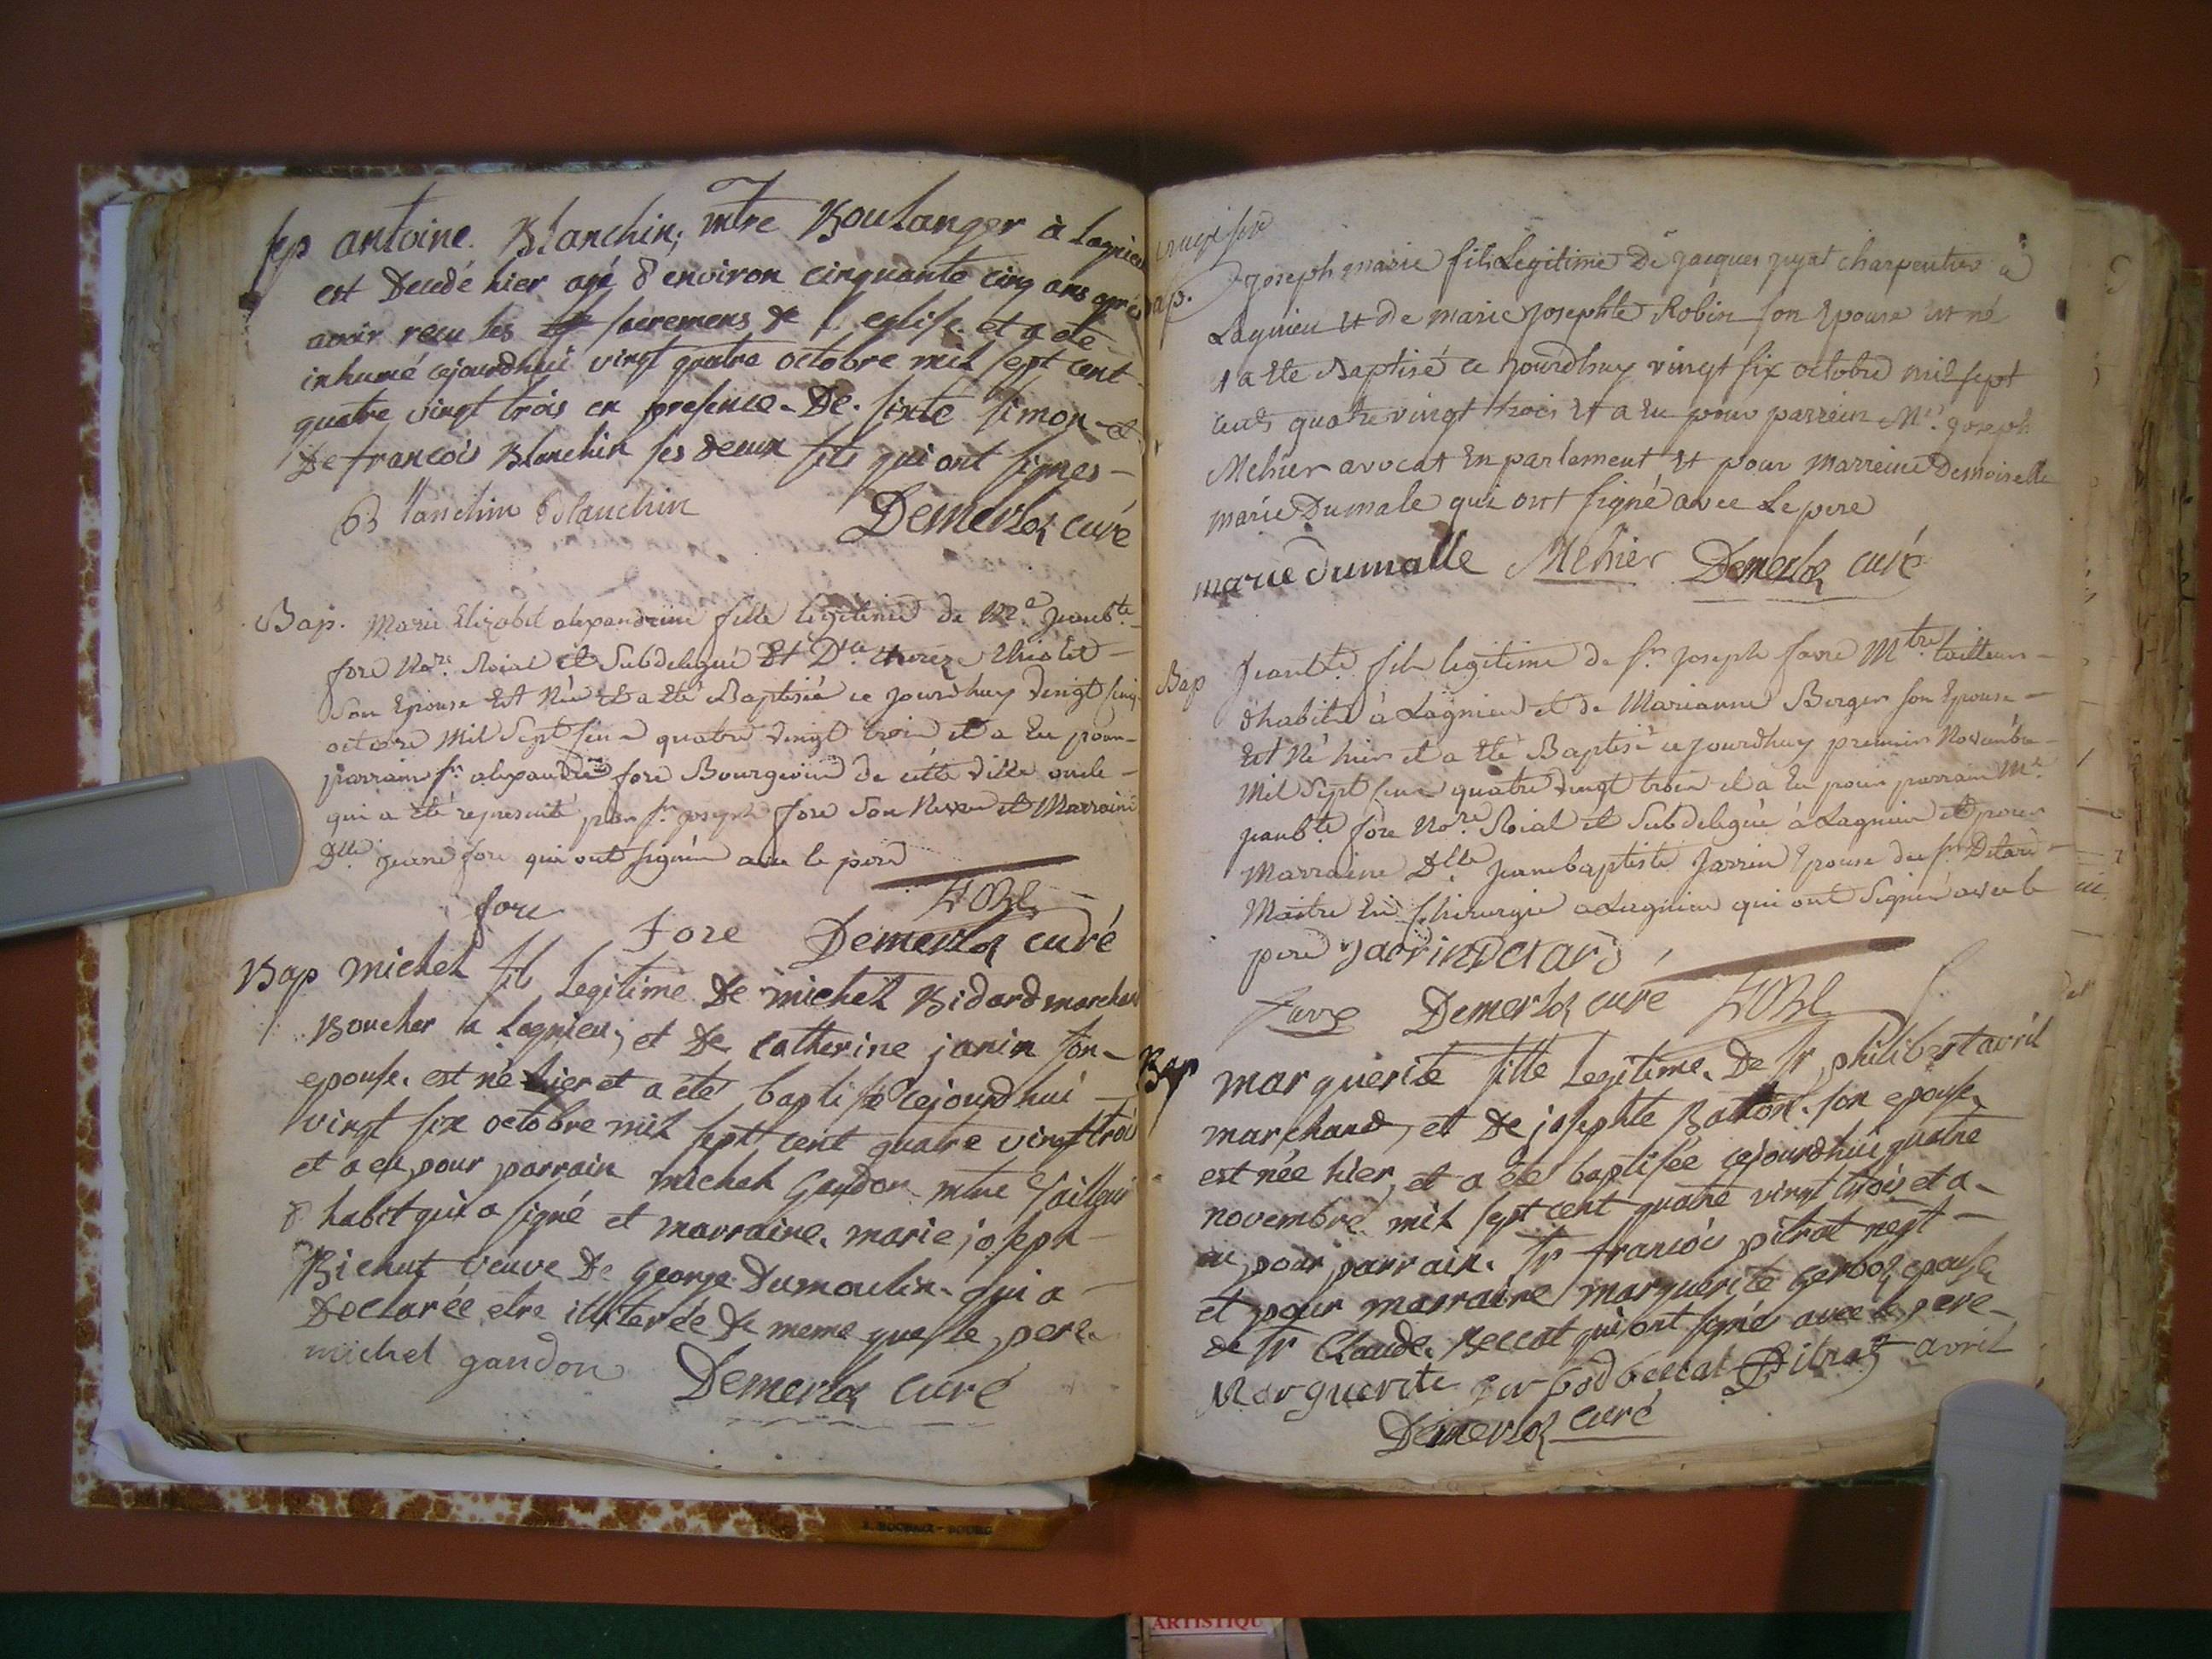 sep antoine Blanchin, mtre Boulanger à Lagnieu
est Decedé hier agé d'environ cinquante cinq ans aprés
avoir reçu les sacremens de l'eglise et a eté
inhumé cejourdhui vingt quatre octobre mil sept cent
quatre vingt trois en presence De sixte simon et
De francois Blanchin ses deux fils qui ont signes
Blanchin Blanchin Demerloz curé
Bap. Marie Elizabet alexandrine fille legitime de Me Jean bte
fore Nore Roial et Subdelegué Et Dlle therèze thiolet
Son Epouse Est Née et a Eté Baptisée ce jourdhuy vingt cinq
octobre Mil Sept Cens quatre vingt trois et a Eu pour
parrain sr alexandre fore Bourgeois de cette ville oncle
qui a Eté representé par sr joseph fore Son Neveu et Marraine
Dlle jeane fore qui ont signés avec le pere
fore Fore FORE
Demerloz curé
Bap michel fils Legitime De michel Bidard marchand
Boucher a Lagnieu, et De Catherine janin son
epouse est né hier et a eté baptisé cejourdhui
vingt six octobre mil sept cent quatre vingt trois
et a eu pour parrain michel Gandon mtre tailleur
d'habit qui a signé et marraine marie joseph
Bichut veuve De george Dumoulin qui a
Declarée etre illiterée de meme que le pere
michel gandon Demerloz curé
Bap.
joseph marie fils Legitime De jacques jujat charpentier à
Lagnieu et de marie josephte Robin son Epouse est né
et a Eté Baptisé ce jourdhuy vingt six octobre mil sept
cents quatre vingt trois et a Eu pour parrain Me joseph
Mehier avocat En parlement et pour marreine Demoiselle
marie Dumale qui ont signé avec Le pere
marie dumalle Mehier Demerloz curé
Bap Jean bte fils legitime de sr joseph favre Mtre tailleur
d'habits à Lagnieu et de Marianne Berger son Epouse
Est Né hier et a Eté Baptisé ce jourdhuy premier Novembre
Mil Sept Cens quatre vingt trois et a Eu pour parrain Me
jean bte fore Nore Roial et Subdelegué à Lagnieu et pour
Marraine Dlle jeane baptiste Jarrin Epouse du sr Detard
Maitre En Chirurgie a Lagnieu qui ont Signé avec le
pere jarrin Detard
favre Demerloz curé FORE
Bap marguerite fille Legitime De sr philibert avril
marchand, et De josephte Batton son epouse
est née hier, et a eté baptisée cejourdhui quatre
novembre mil sept cent quatre vingt trois et a
eu pour parrain sr francois pitrat negt
et pour marraine marguerite Gerboz epouse
de sr Claude Beccat qui ont signés avec le pere
Marguerite gerbod beccat Pitrat avril
Demerloz curé
ARTISTIQU